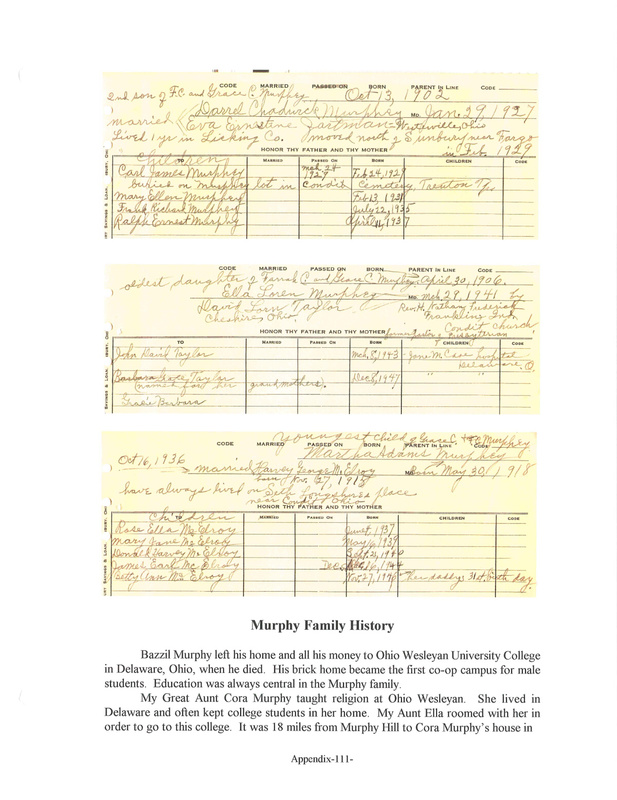 CODE MARRIED PASSED ON BORN PARENT IN LINE CODE
2nd son of F.C. and Grace C. Murphey Oct 13, 1902
Darrel Chadwick Murphey MD. Jan. 29, 1927
married Eva Ernestene Westerville, Ohio
Lived 1 yr in Licking Co. moved north of Sunbury near Fargo
HONOR THY FATHER AND THY MOTHER in Feb. 1929
Children
TO MARRIED PASSED ON BORN CHILDREN CODE
Carl James Murphey 1927 Feb 24, 1927
buried on Murphey lot in Condit Cemetery, Trenton Tp.
Mary Ellen Murphey Feb 13, 1931
Frank Richard Murphey July 22, 1935
Ralph Ernest Murphey April 11, 1937
CODE MARRIED PASSED ON BORN PARENT IN LINE CODE
oldest daughter of and Grace C. Murphey April 30, 1906.
Ella Loren Murphey MD. Mch. 29, 1941 by
David Lorn Taylor Rev. H. Nathany Frederick
Cheshire Ohio. Franklin Ind.
Condit Church
HONOR THY FATHER AND THY MOTHER Presbyterian
TO MARRIED PASSED ON BORN CHILDREN CODE
John David Taylor Mch. 8, 1943 Jane M. Case hospital
Delaware, O.
Barbara Grace Taylor Dec 8, 1947 " "
(named for her grandmothers).
Gracie Barbara
Youngest child of Grace C. & F.C. Murphey
CODE MARRIED PASSED ON BORN PARENT IN LINE CODE
Martha Adams Murphey
Oct 16, 1936 married Harvey George McElroy Born May 30, 1918
born Nov. 27, 1915
have always lived on Seth Longshores place
near Condit Ohio
HONOR THY FATHER AND THY MOTHER
Children
TO MARRIED PASSED ON BORN CHILDREN CODE
Rose Ella McElroy June 9, 1937
Mary Jane McElroy May 16, 1939
Donald Harvey McElroy Sept. 21, 1940
James Earl McElroy Dec 16, 1944
Betty Ann McElroy Nov. 27, 1946 daddys 31st birth day.
Murphy Family History
Bazzil Murphy left his home and all his money to Ohio Wesleyan University College
in Delaware, Ohio, when he died. His brick home became the first co-op campus for male
students. Education was always central in the Murphy family.
My Great Aunt Cora Murphy taught religion at Ohio Wesleyan. She lived in
Delaware and often kept college students in her home. My Aunt Ella roomed with her in
order to go to this college. It was 18 miles from Murphy Hill to Cora Murphy's house in
Appendix-111-